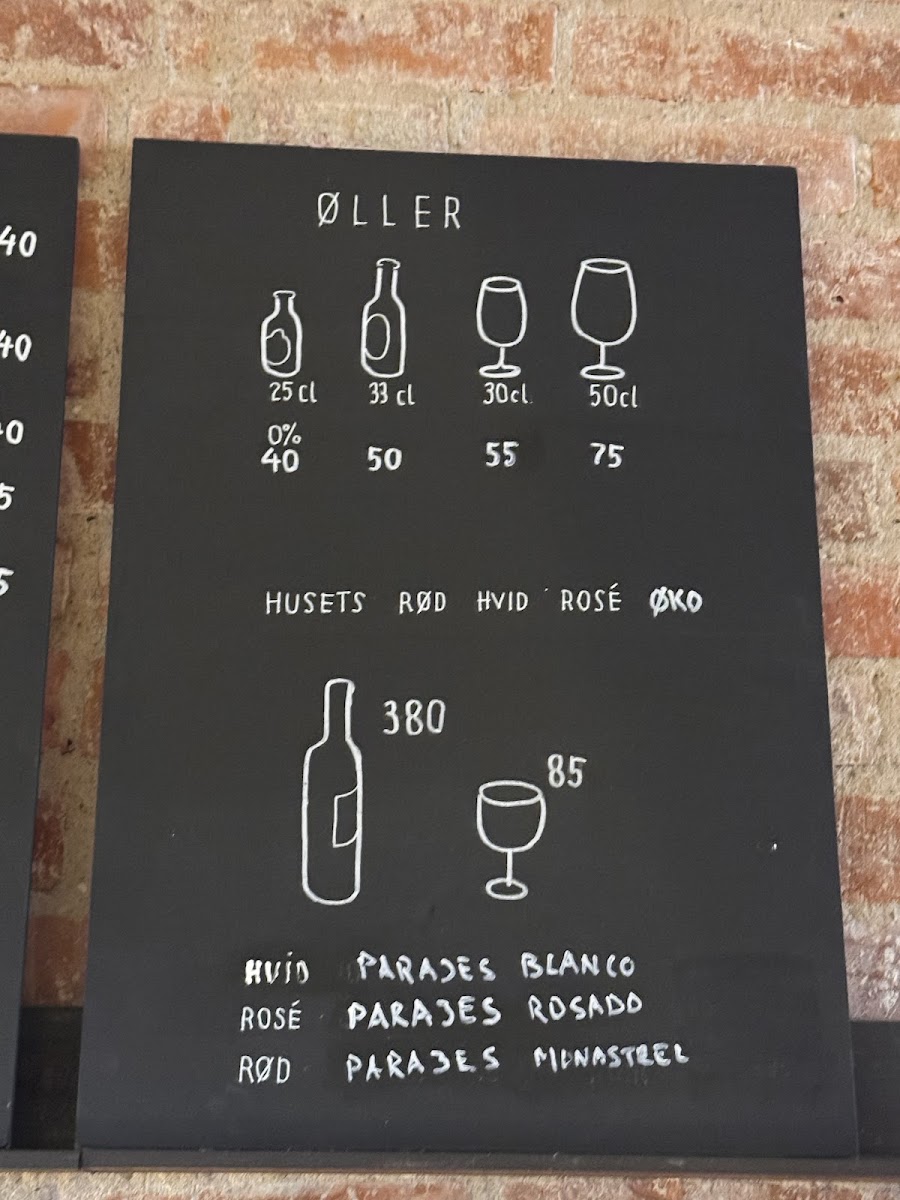 40
40
40
5
5
ØLLER
25 cl 33 cl 30cl. 50cl
0%
40 50 55 75
HUSETS RØD HVID ROSÉ ØKO
380
85
HVID PARAJES BLANCO
ROSÉ PARAJES ROSADO
RØD PARAJES MONASTREL